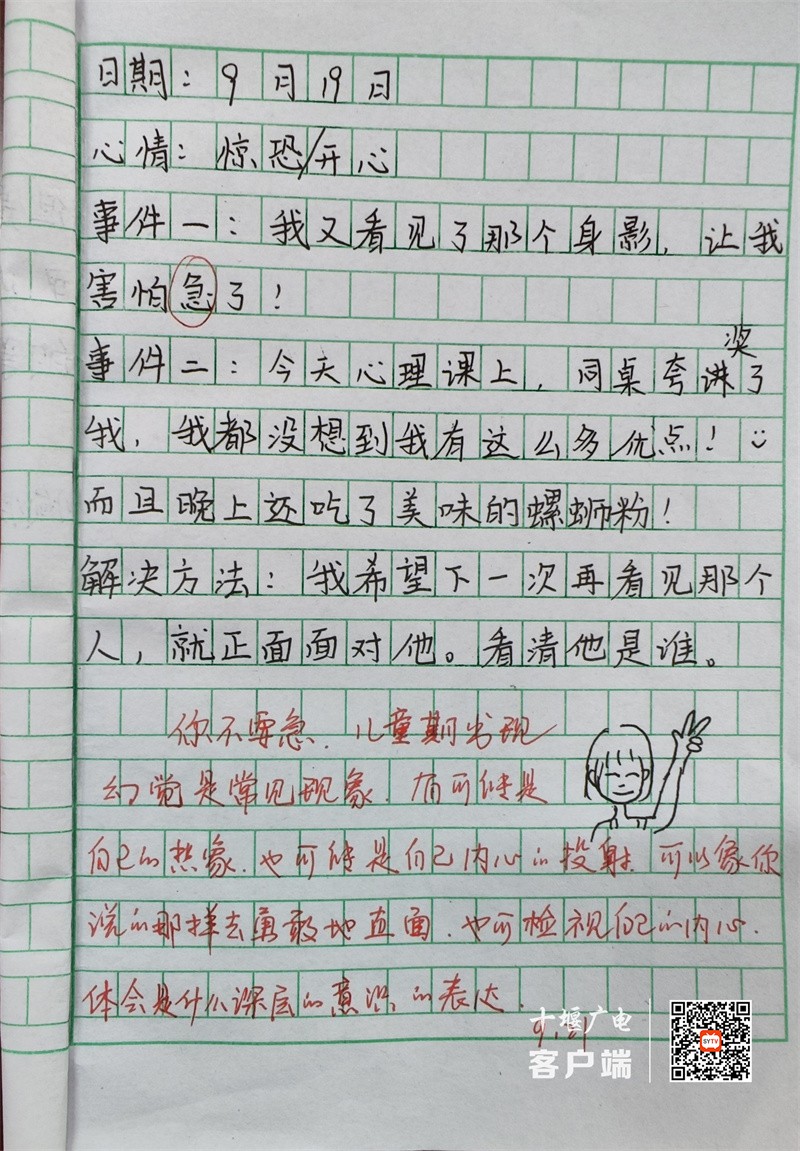 日期：9月19日
心情：惊恐/开心
事件一：我又看见了那个身影，让我
害怕急了！
奖
事件二：今天心理课上，同桌夸讲了
我，我都没想到我有这么多优点！
而且晚上还吃了美味的螺蛳粉！
解决方法：我希望下一次再看见那个
人，就正面面对他。看清他是谁。
你不要急．儿童期出现
幻觉是常见现象．有可能是
自己的想象．也可能是自己内心的投射．可以象你
说的那样去勇敢地直面．也可检视自己的内心．
体会是什么深层的意识的表达．
十堰广电
客户端
SYTV